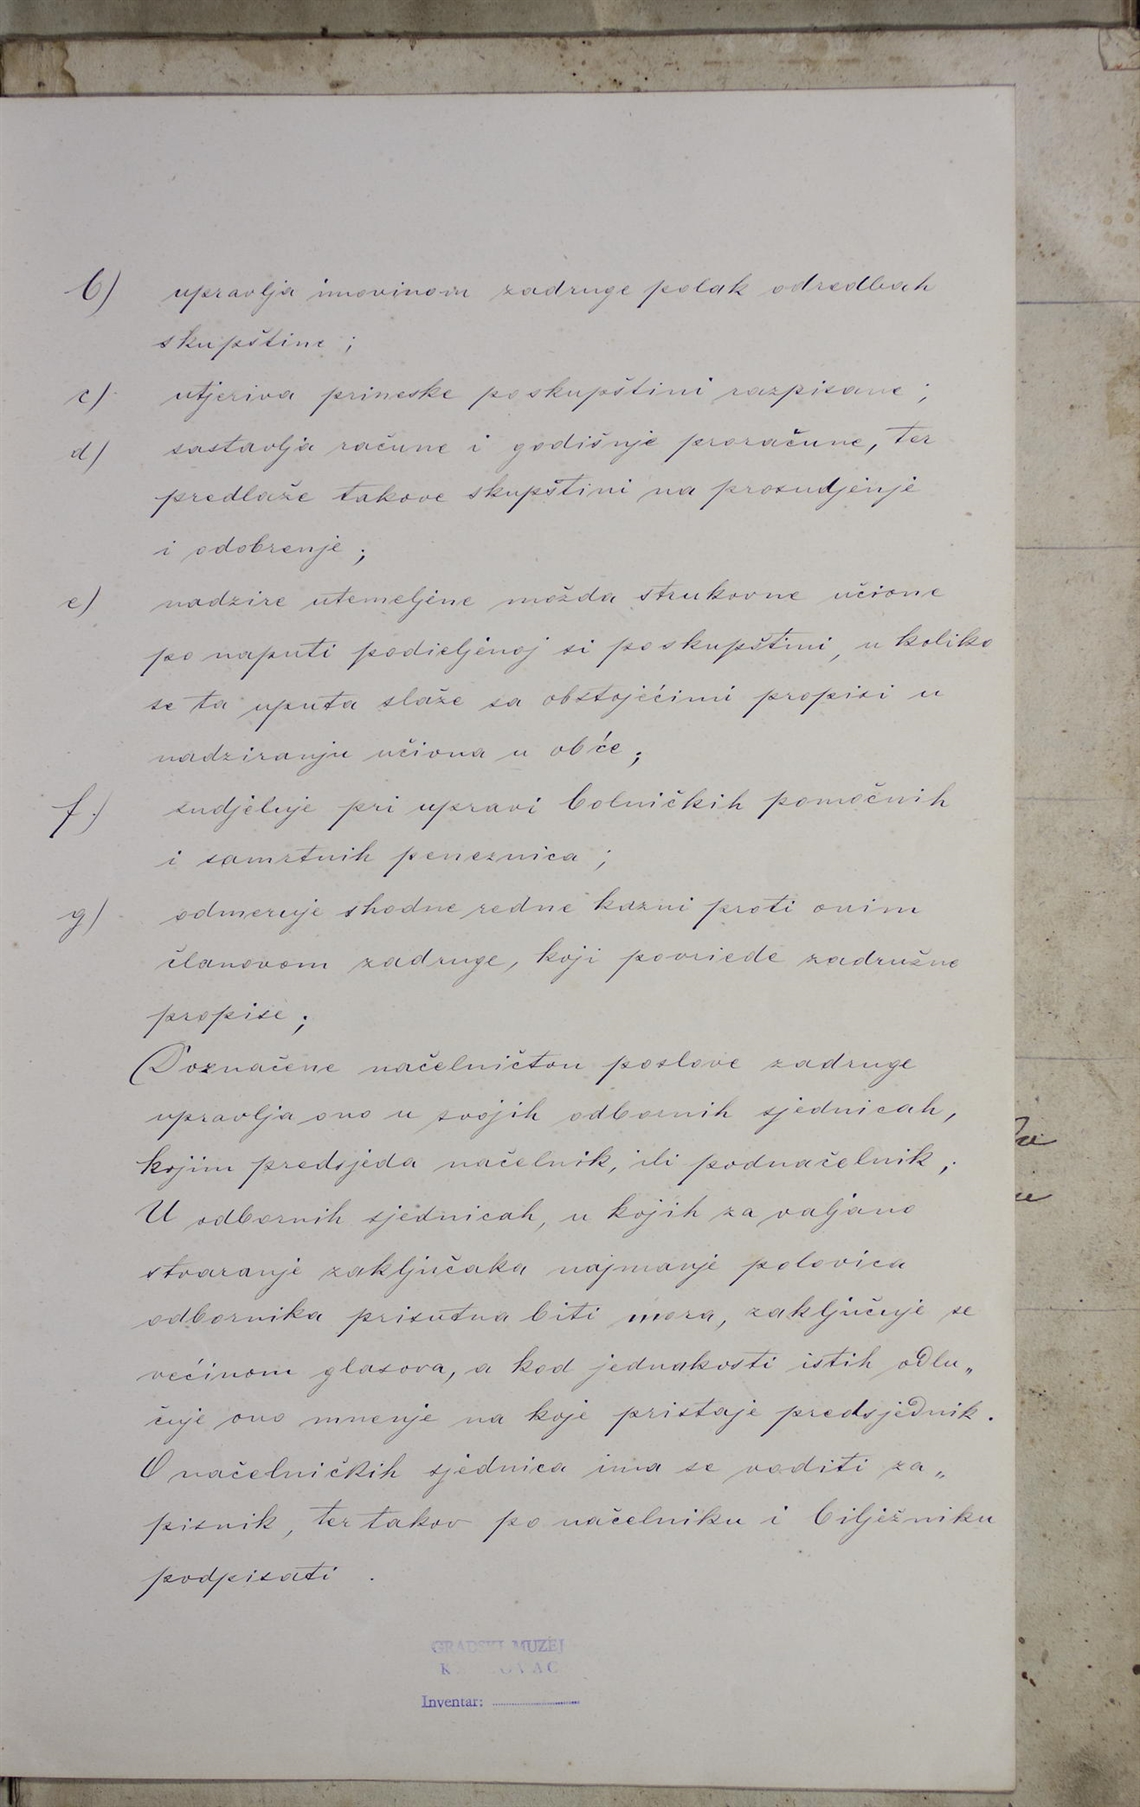 b) upravlja imovinom zadruge polak odredbah
skupštine ;
c) utjeriva prineske po skupštini razpisane ;
d) sastavlja račune i godišnje proračune, ter
predlaže takove skupštini na prosudjenje
i odobrenje ;
e) nadzire utemeljene možda strukovne učione
po naputi podieljenoj si po skupštini, u koliko
se ta uputa slaže sa obstojećimi propisi u
nadziranju učiona u obće ;
f.) sudjeluje pri upravi bolničkih pomoćnih
i samrtnih peneznica ;
g) odmeruje shodne redne kazni proti onim
članovom zadruge, koji povriede zadružne
propise ;
Označene načelničtvu poslove zadruge
upravlja ono u svojih odbornih sjednicah,
kojim predsjeda načelnik, ili podnačelnik ;
U odbornih sjednicah, u kojih za valjano
stvaranje zaključaka najmanje polovica
odbornika prisutna biti mora, zaključuje se
većinom glasova, a kod jednakosti istih odlu„
čuje ono mnenje na koje pristaje predsjednik.
O načelničkih sjednica ima se voditi za„
pisnik, ter takov po načelniku i bilježniku
podpisati .
GRADSKI MUZEJ
Inventar: